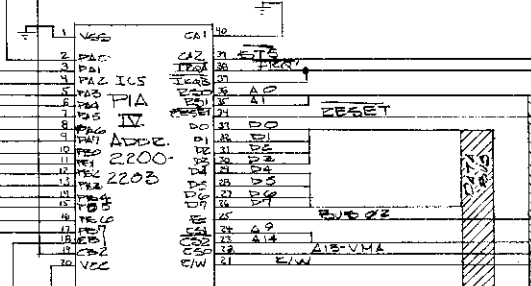 1 VSS CA1 40
2 PA0 CA2 39 STS
3 PA1 IRQA 38 FIRQ
4 PA2 IC5 IRQB 37
5 PA3 RS0 36 A0
6 PA4 PIA RS1 35 A1
7 PA5 RESET 34 RESET
8 PA6 IV D0 33 D0
9 PA7 ADDR. D1 32 D1
10 PB0 2200- D2 31 D2
11 PB1 2203 D3 30 D3
12 PB2 D4 29 D4
13 PB3 D5 28 D5
14 PB4 D6 27 D6
15 PB5 D7 26 D7
16 PB6 E 25 BUS Ø2
17 PB7 CS1 24 A9
18 CB1 CS2 23 A14
19 CB2 CS0 22 A13-VMA
20 VCC R/W 21 R/W
DATA BUS